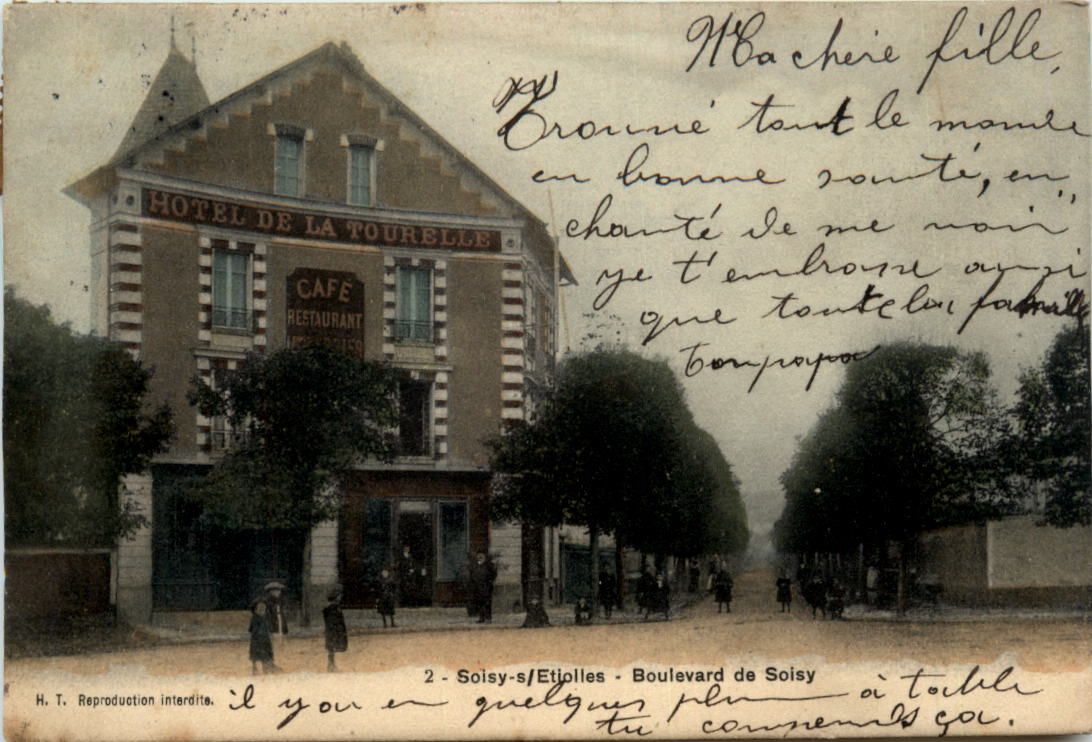 Ma chère fille,
Trouvé tout le monde
en bonne santé, en
chanté de me voir
je t'embrasse ainsi
que toute la famille
ton papa
HOTEL DE LA TOURELLE
CAFÉ
RESTAURANT
2 - Soisy-s/Etiolles - Boulevard de Soisy
H. T. Reproduction interdite.
il y en a en quelques plum à table
tu comprends ça.